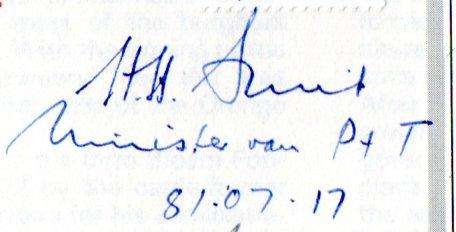 HH. Smit
Minister van P+T
81.07.17